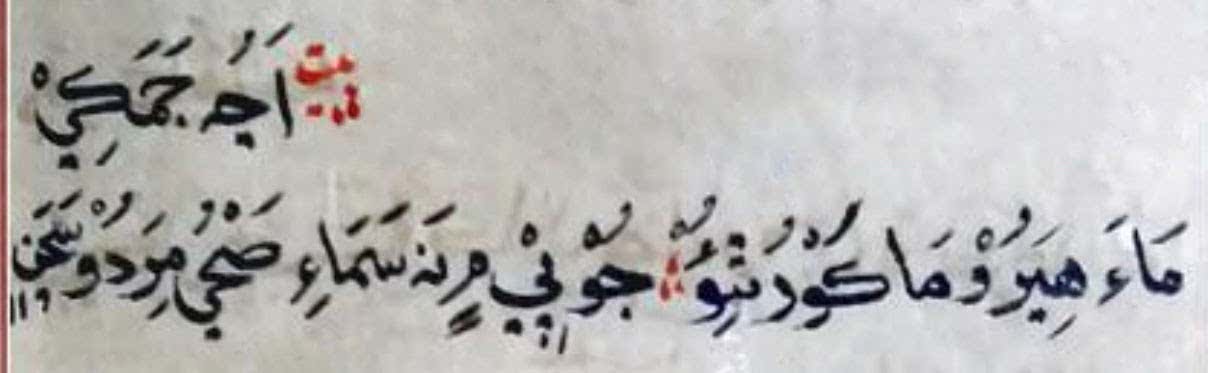 بيت اَجُ جَمَكِيْ
مَاءَ هِيَرُوْ مَا كُوْرُنْتِوُؤْ جُوْپِيْ مِرِنَه سَمَاءِ صَحِيُ مِرَدُوْ سَخَنْ